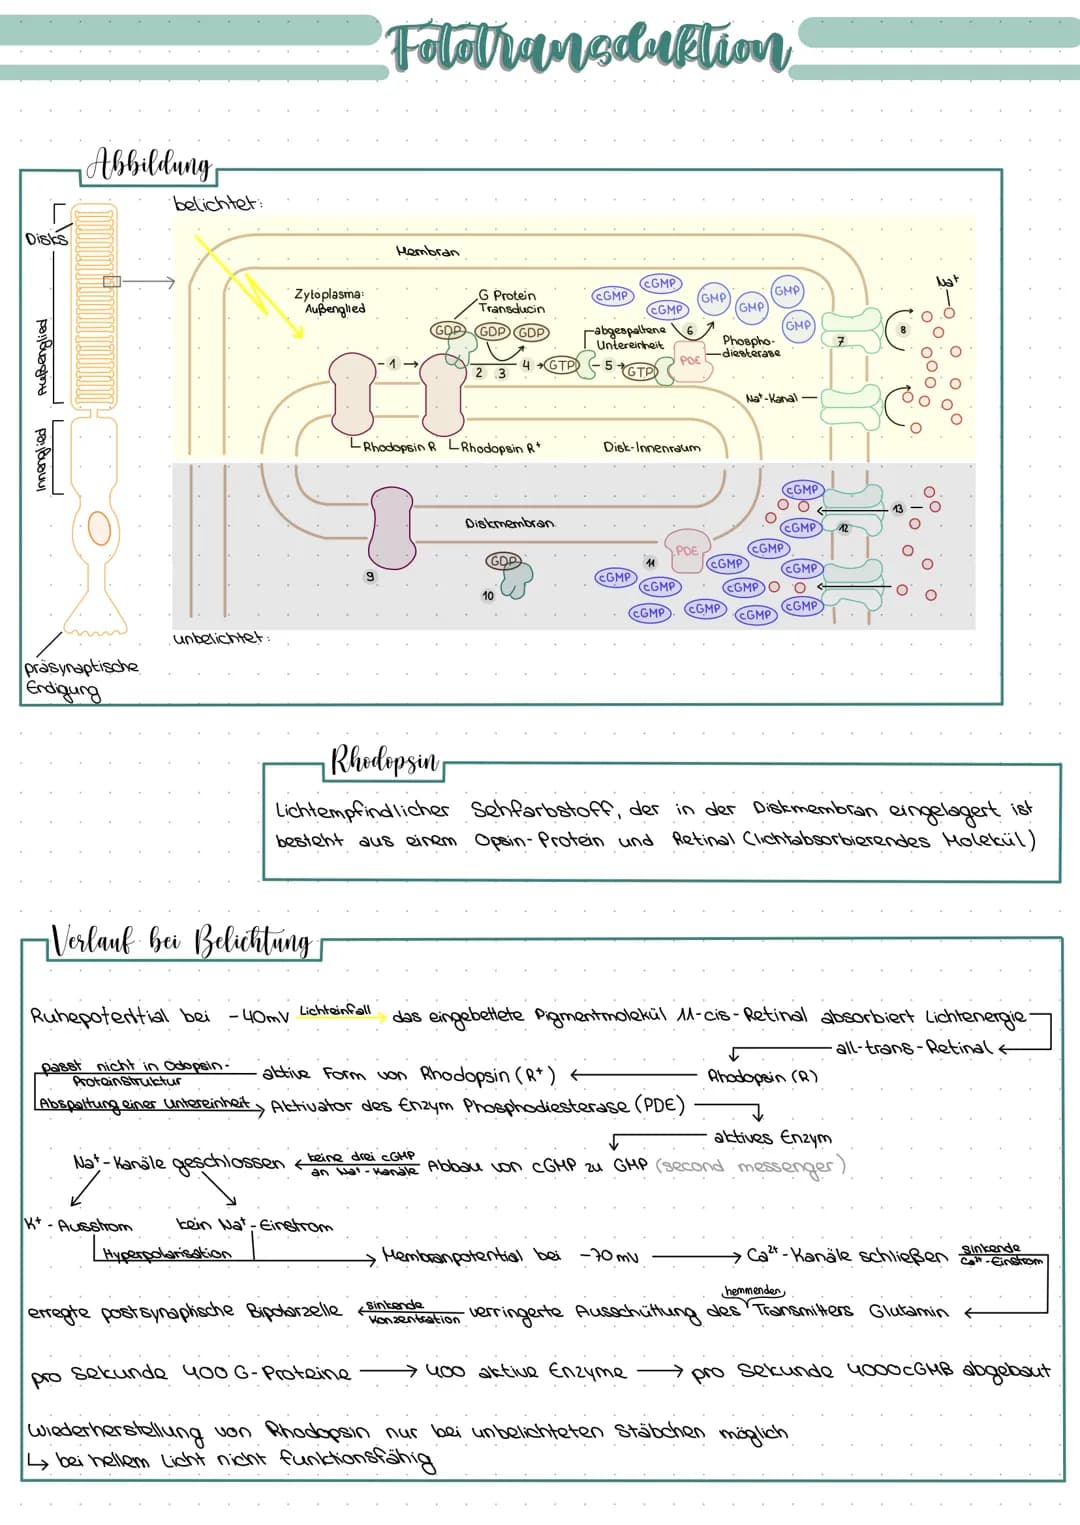 Fototransduktion
Abbildung
belichtet:
Disks
Außenglied
Innenglied
präsynaptische
Endigung
Membran
Zytoplasma:
Außenglied
G Protein
Transducin
GDP GDP GDP
cGMP cGMP cGMP GMP GMP GMP GMP
abgespaltene
Untereinheit
6
Phospho-
diesterase
PDE
1 2 3 4 GTP 5 GTP
7 8
Na+
Na+-Kanal
Rhodopsin R Rhodopsin R+ Disk-Innenraum
Diskmembran
9
GDP
10
11
PDE
cGMP cGMP cGMP cGMP cGMP cGMP cGMP cGMP cGMP cGMP cGMP cGMP
12 13
unbelichtet:
Rhodopsin
Lichtempfindlicher Sehfarbstoff, der in der Diskmembran eingelagert ist
besteht aus einem Opsin-Protein und Retinal (lichtabsorbierendes Molekül)
Verlauf bei Belichtung
Ruhepotential bei -40mV Lichteinfall das eingebettete Pigmentmolekül 11-cis-Retinal absorbiert Lichtenergie
all-trans-Retinal
passt nicht in Odopsin-
Proteinstruktur
aktive Form von Rhodopsin (R+) Rhodopsin (R)
Abspaltung einer Untereinheit Aktivator des Enzym Phosphodiesterase (PDE)
aktives Enzym
Na+-Kanäle geschlossen keine drei cGMP
an Na+-Kanäle Abbau von cGMP zu GMP (second messenger)
K+-Ausstrom kein Na+-Einstrom
Hyperpolarisation Membranpotential bei -70 mV Ca2+-Kanäle schließen sinkende
Ca2+-Einstrom
hemmenden
erregte postsynaptische Bipolarzelle sinkende
Konzentration verringerte Ausschüttung des Transmitters Glutamin
pro Sekunde 400 G-Proteine 400 aktive Enzyme pro Sekunde 4000cGMB abgebaut
Wiederherstellung von Rhodopsin nur bei unbelichteten Stäbchen möglich
bei hellem Licht nicht funktionsfähig